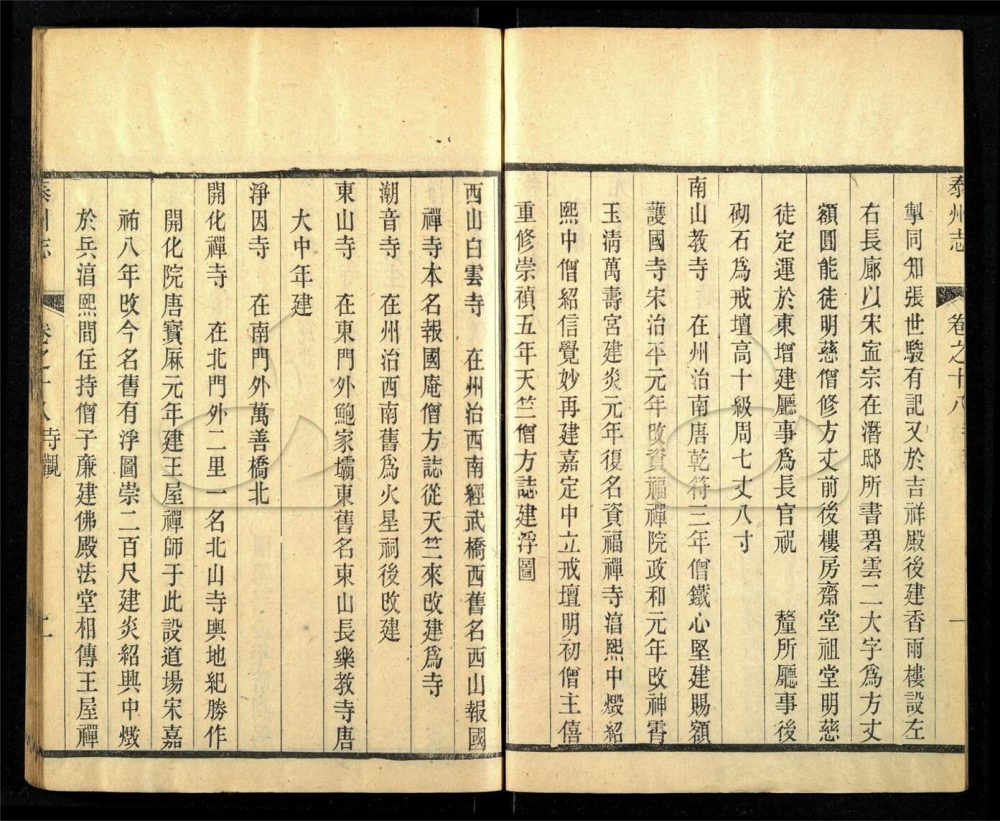 泰州志 卷之十八 一
掣同知張世駿有記又於吉祥殿後建香雨樓設左
右長廊以宋寍宗在潛邸所書碧雲二大字爲方丈
額圓能徒明慈僧修方丈前後樓房齋堂祖堂明慈
徒定運於東增建廳事爲長官祝 釐所廳事後
砌石爲戒壇高十級周七丈八寸
南山教寺 在州治南唐乾符三年僧鐵心堅建賜額
護國寺宋治平元年改資福禪院政和元年改神霄
玉淸萬壽宮建炎元年復名資福禪寺湻熙中燬紹
熙中僧紹信覺妙再建嘉定中立戒壇明初僧主僖
重修崇禎五年天竺僧方誌建浮圖
西山白雲寺 在州治西南經武橋西舊名西山報國
禪寺本名報國庵僧方誌從天竺來改建爲寺
潮音寺 在州治西南舊爲火星祠後改建
東山寺 在東門外鮑家壩東舊名東山長樂教寺唐
大中年建
淨因寺 在南門外萬善橋北
開化禪寺 在北門外二里一名北山寺輿地紀勝作
開化院唐寶厤元年建王屋禪師于此設道場宋嘉
祐八年改今名舊有浮圖崇二百尺建炎紹興中燬
於兵湻熙間住持僧子廉建佛殿法堂相傳王屋禪
泰州志 卷之十八寺觀 二